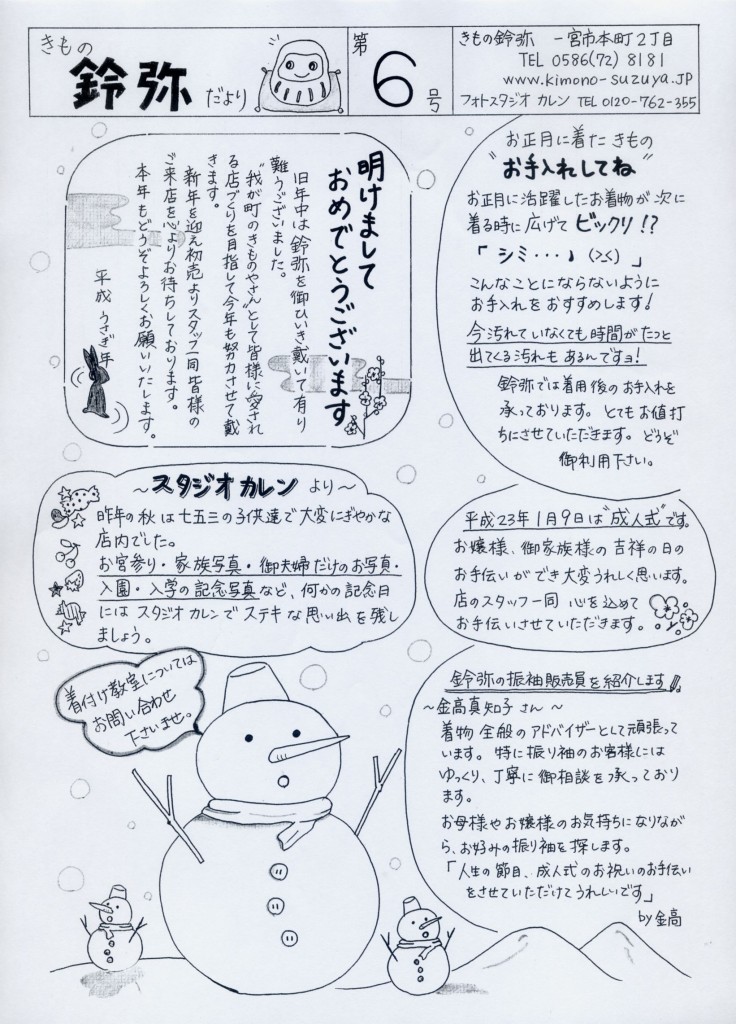 きもの
鈴弥だより
第
6
号
きもの鈴弥 一宮市本町2丁目
TEL 0586(72)8181
www.kimono-suzuya.JP
フォトスタジオ カレン TEL 0120-762-355
明けまして
おめでとうございます
旧年中は鈴弥を御ひいき戴いて有り
難うございました。
"我が町のきものやさん"として皆様に愛され
る店づくりを目指して今年も努力させて戴
きます。
新年を迎え初売よりスタッフ一同皆様の
ご来店を心よりお待ちしております。
本年もどうぞよろしくお願いいたします。
平成 うさぎ年
お正月に着た きもの
"お手入れしてね"
お正月に活躍したお着物が次に
着る時に広げて ビックリ!?
「シミ・・・」(><)」
こんなことにならないように
お手入れをおすすめします!
今汚れていなくても時間がたつと
出てくる汚れもあるんですョ!
鈴弥では着用後のお手入れを
承っております。とてもお値打
ちにさせていただきます。どうぞ
御利用下さい。
~スタジオカレン より~
昨年の秋は七五三の子供達で大変にぎやかな
店内でした。
お宮参り・家族写真・御夫婦だけのお写真・
入園・入学の記念写真など、何かの記念日
にはスタジオカレンでステキな思い出を残し
ましょう。
平成23年1月9日は"成人式"です。
お嬢様、御家族様の吉祥の日の
お手伝いができ大変うれしく思います。
店のスタッフ一同 心を込めて
お手伝いさせていただきます。
着付け教室については
お問い合わせ
下さいませ。
鈴弥の振袖販売員を紹介します
~金高真知子さん~
着物全般のアドバイザーとして頑張って
います。特に振り袖のお客様には
ゆっくり、丁寧に御相談を承っており
ます。
お母様やお嬢様のお気持ちになりなが
ら、お好みの振り袖を探します。
「人生の節目、成人式のお祝いのお手伝い
をさせていただけてうれしいです」
by金高